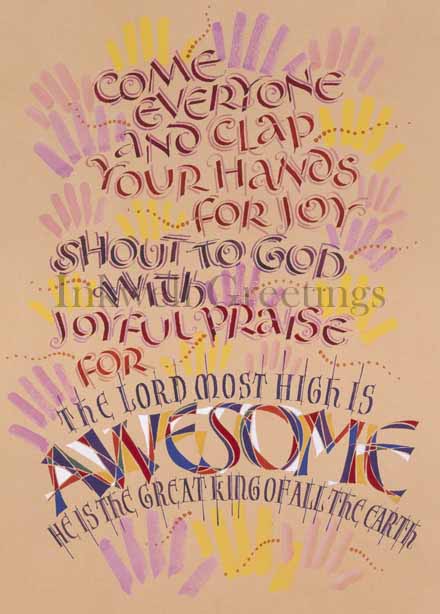 COME
EVERYONE
AND CLAP
YOUR HANDS
FOR JOY
SHOUT TO GOD
WITH
JOYFUL PRAISE
FOR
THE LORD MOST HIGH IS
AWESOME
HE IS THE GREAT KING OF ALL THE EARTH